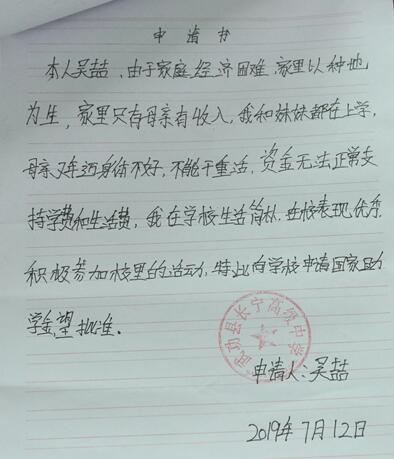 申请书
本人吴喆,由于家庭经济困难,家里以种地
为生,家里只有母亲有收入,我和妹妹都在上学,
母亲年迈身体不好,不能干重活,资金无法正常支
持学费和生活费,我在学校生活简朴,在校表现优秀,
积极参加校里的活动,特此向学校申请国家助
学金望批准.
武功县长宁高级中学
申请人:吴喆
2019年7月12日